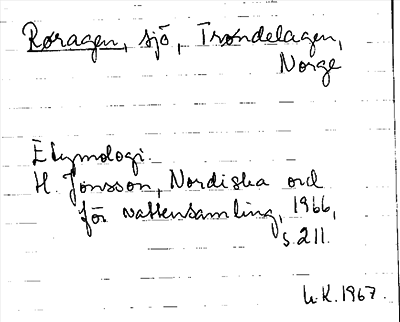 Røragen, sjö, Trøndelagen,
Norge
Etymologi.
H. Jonsson, Nordiska ord
för vattensamling, 1966,
s. 211.
h.K. 1967.